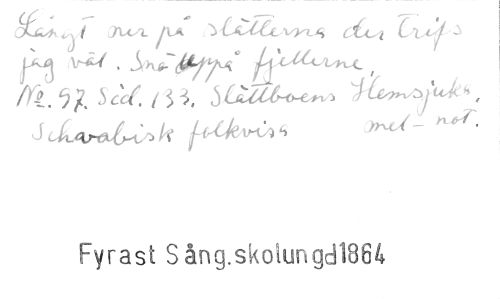 Långt ner på slätterna der trifs
jag väl. Snö uppå fjellerne,
No. 97. Sid. 133. Slättboens Hemsjuka.
Schwabisk folkvisa mel-not.
Fyrast Sång.skolungd1864